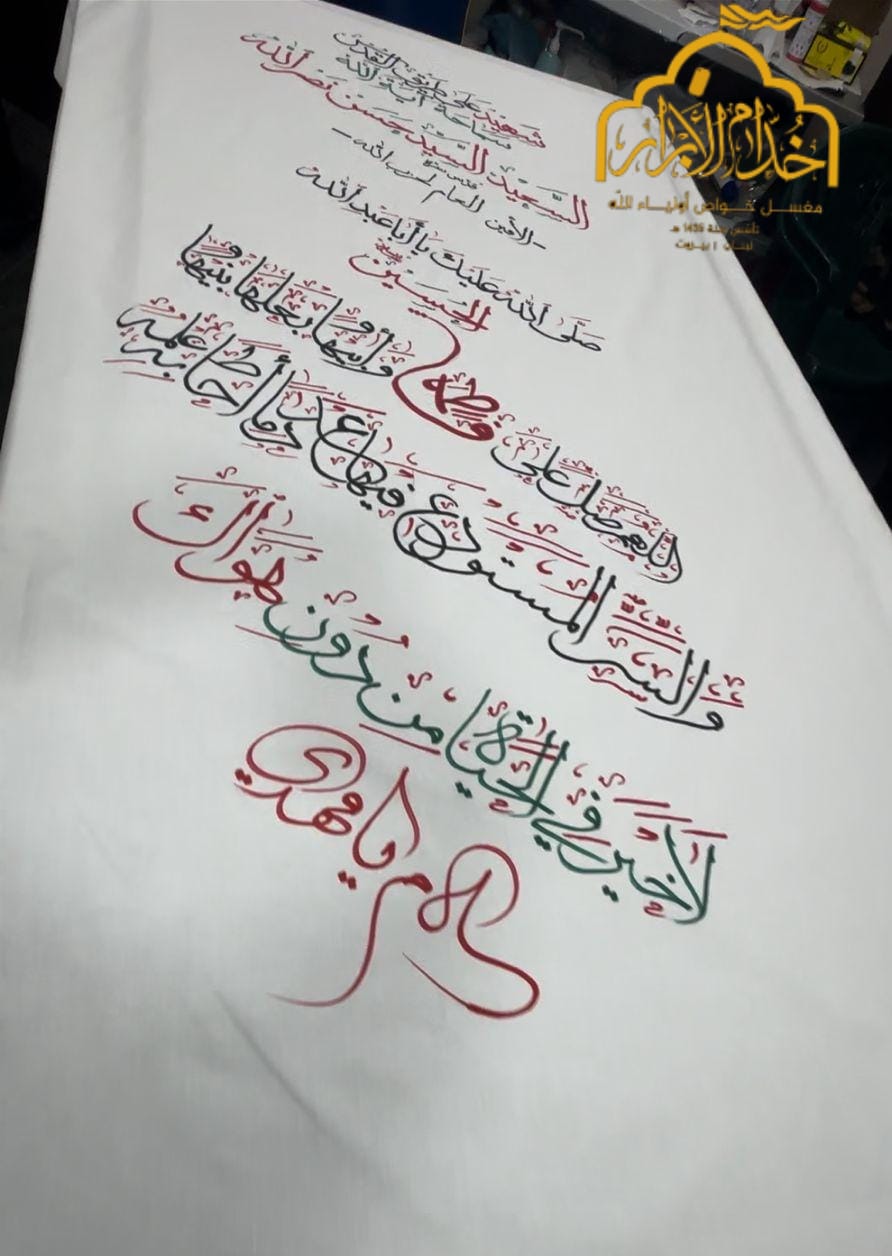 شهيد على طريق القدس
سماحة آية الله
السعيد السيد حسن نصر الله
قدس سره
-الأمين العام لحزب الله-
صَلَّى اللهُ عَلَيْكَ يا أبا عبد الله
الحُسَين
اللهم صل على فاطمة وأبيها وبعلها وبنيها
والسر المستودع فيها عدد ما أحاط به علمك
لا خير في الحياة من دون هواك
يا مهدي
خُدّام الأبرار
مغسل خواص أولياء الله
تأسس سنة 1435 هـ
لبنان | بيروت